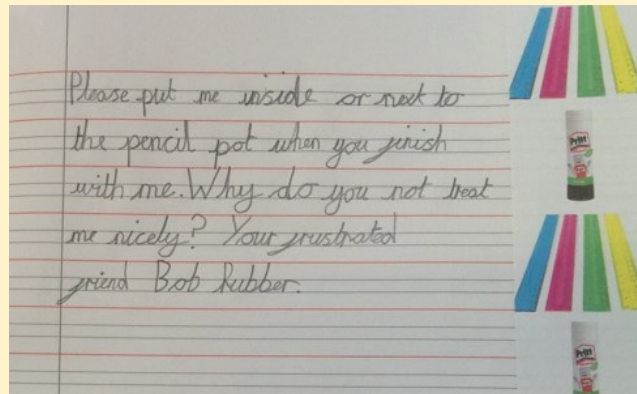 Please put me inside or next to
the pencil pot when you finish
with me. Why do you not treat
me nicely? Your frustrated
friend Bob Rubber.
Pritt
Pritt